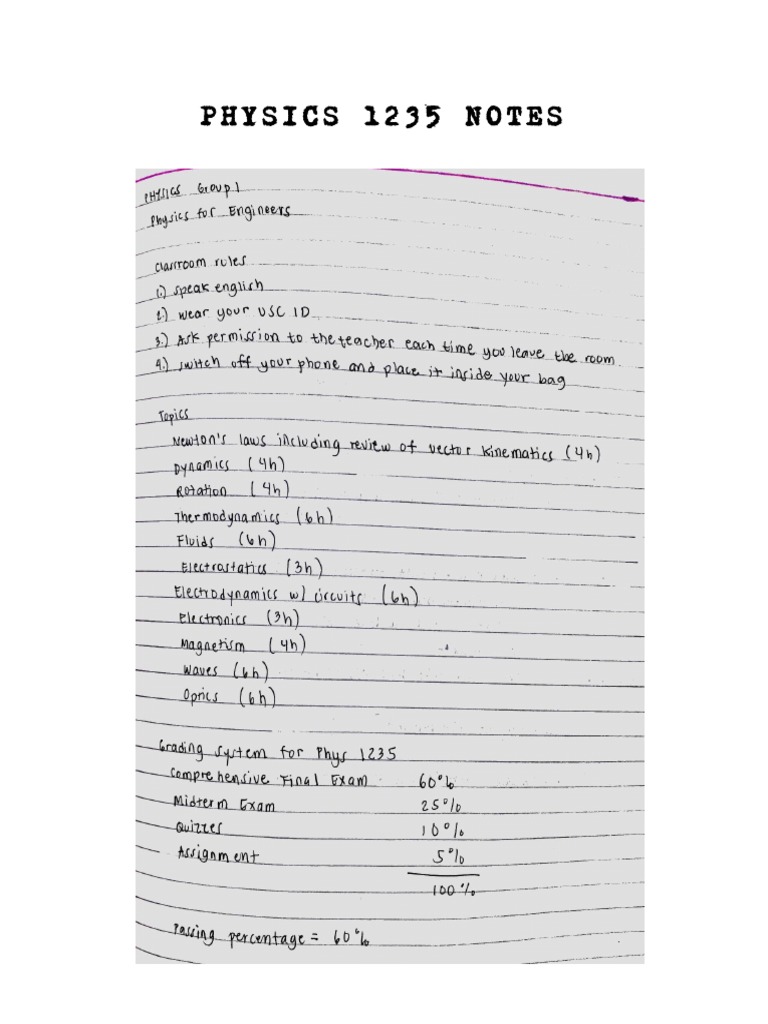 PHYSICS 1235 NOTES
PHYSICS Group 1
Physics for Engineers
Classroom rules
1.) speak english
2.) wear your USC ID
3.) Ask permission to the teacher each time you leave the room
4.) switch off your phone and place it inside your bag
Topics
Newton's laws including review of vector kinematics (4h)
Dynamics (4h)
Rotation (4h)
Thermodynamics (6h)
Fluids (6h)
Electrostatics (3h)
Electrodynamics w/ circuits (6h)
Electronics (3h)
Magnetism (4h)
Waves (6h)
Optics (6h)
Grading system for Phys 1235
Comprehensive Final Exam 60%
Midterm Exam 25%
Quizzes 10%
Assignment 5%
100%
Passing percentage = 60%